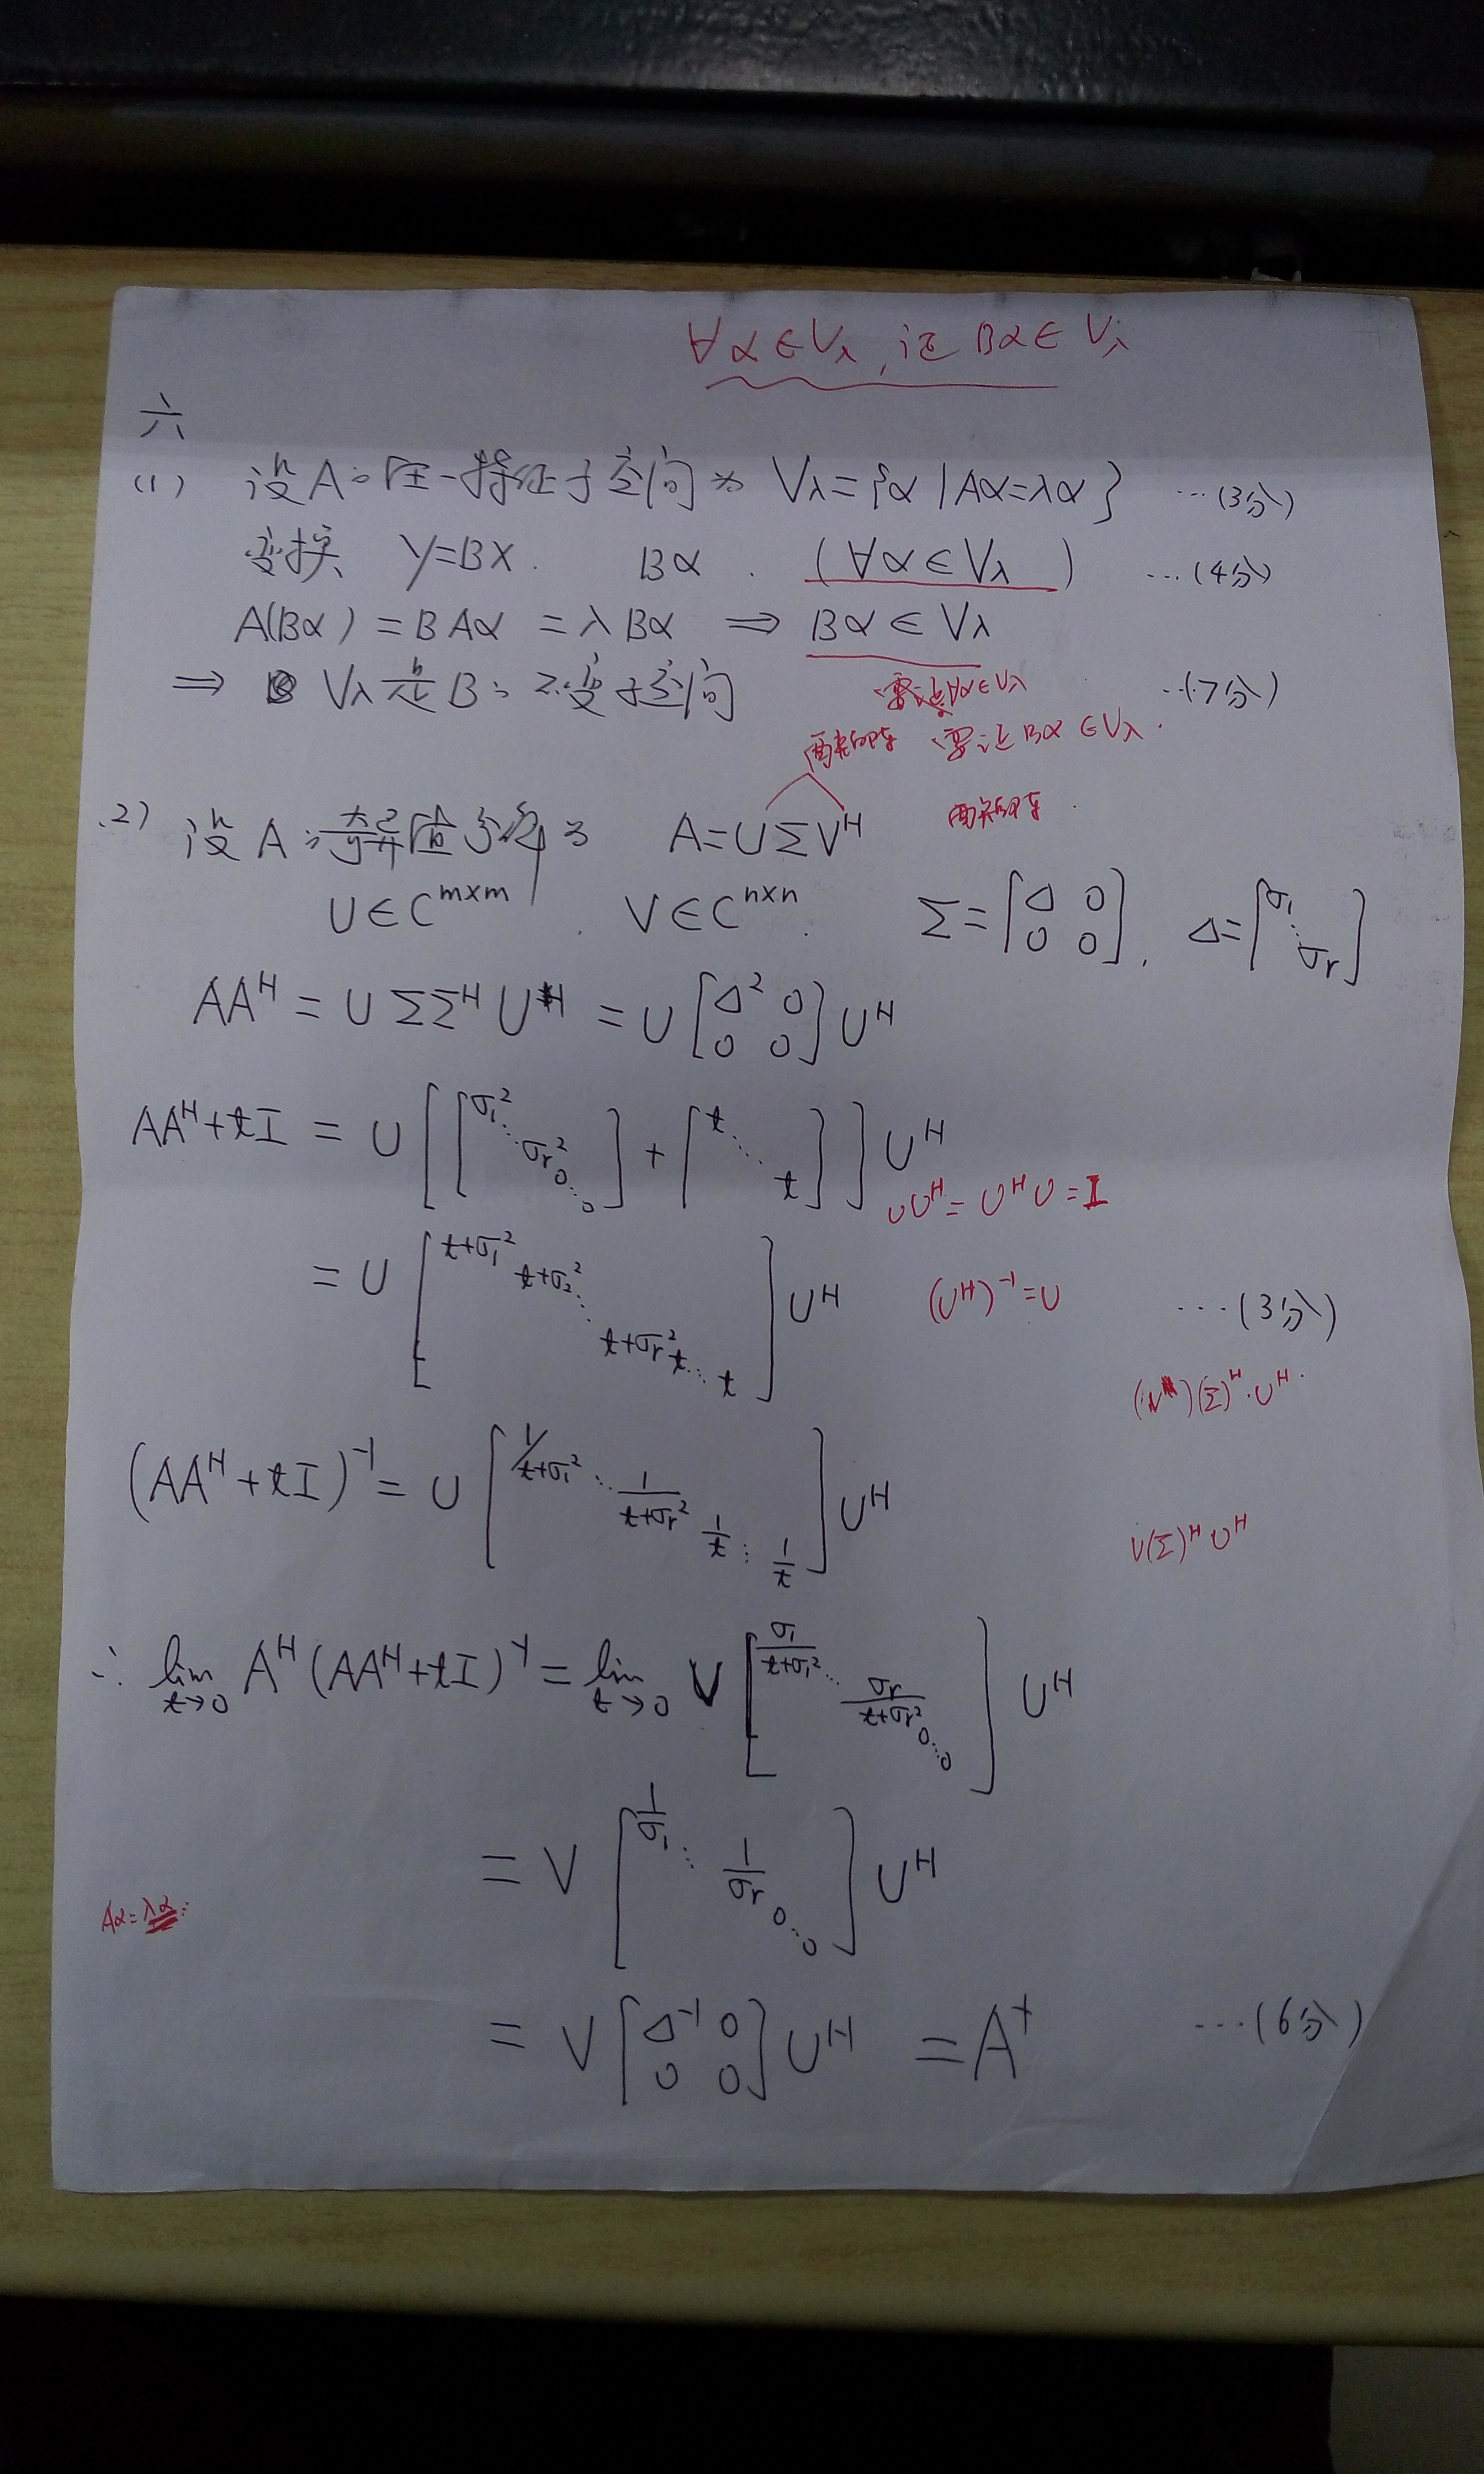 ∀α∈Vλ, 证Bα∈Vλ
六
(1) 设A的任一特征子空间为 Vλ={α|Aα=λα} …(3分)
变换 y=Bx. Bα. (∀α∈Vλ) …(4分)
A(Bα)=BAα=λBα ⇒ Bα∈Vλ
⇒ Vλ是B的不变子空间 …(7分)
要证∀α∈Vλ
酉矩阵 要证Bα∈Vλ.
2) 设A的奇异值分解为 A=UΣV^H 酉矩阵.
U∈C^{m×m}, V∈C^{n×n}. Σ=[Δ 0; 0 0], Δ=[σ₁ ⋱ σr]
AA^H=UΣΣ^H U^H=U[Δ² 0; 0 0]U^H
AA^H+tI=U[[σ₁² ⋱ σr² 0 ⋱ 0]+[t ⋱ t]]U^H
UU^H=U^H U=I
=U[t+σ₁² t+σ₂² ⋱ t+σr² t ⋱ t]U^H (U^H)^{-1}=U …(3分)
(Σ)^H·U^H.
(AA^H+tI)^{-1}=U[1/(t+σ₁²) ⋱ 1/(t+σr²) 1/t ⋱ 1/t]U^H
V(Σ)^H U^H
∴ lim_{t→0} A^H(AA^H+tI)^{-1}=lim_{t→0} V[σ₁/(t+σ₁²) ⋱ σr/(t+σr²) 0 ⋱ 0]U^H
=V[1/σ₁ ⋱ 1/σr 0 ⋱ 0]U^H
Aα=λα
=V[Δ^{-1} 0; 0 0]U^H=A^+ …(6分)